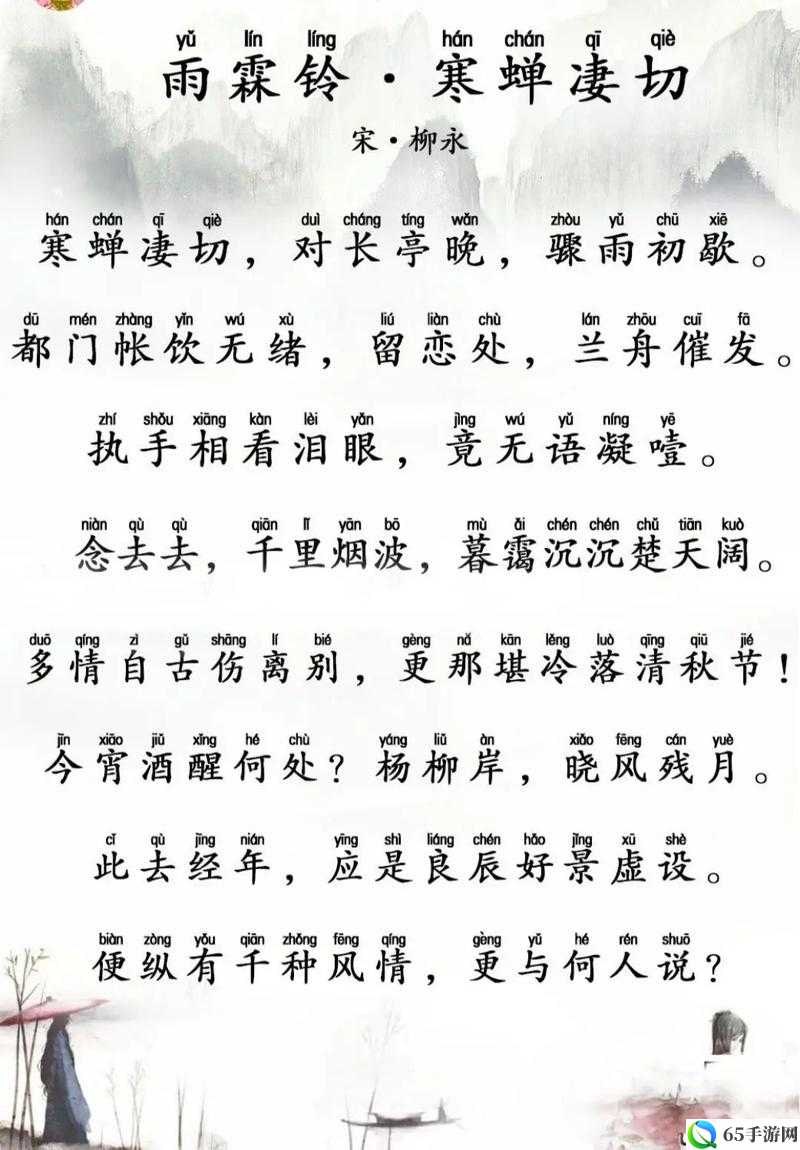 yǔ lín líng hán chán qī qiè
雨霖铃·寒蝉凄切
宋·柳永
hán chán qī qiè duì cháng tíng wǎn zhòu yǔ chū xiē
寒蝉凄切，对长亭晚，骤雨初歇。
dū mén zhàng yǐn wú xù liú liàn chù lán zhōu cuī fā
都门帐饮无绪，留恋处，兰舟催发。
zhí shǒu xiāng kàn lèi yǎn jìng wú yǔ níng yē
执手相看泪眼，竟无语凝噎。
niàn qù qù qiān lǐ yān bō mù ǎi chén chén chǔ tiān kuò
念去去，千里烟波，暮霭沉沉楚天阔。
duō qíng zì gǔ shāng lí bié gèng nǎ kān lěng luò qīng qiū jié
多情自古伤离别，更那堪冷落清秋节！
jīn xiāo jiǔ xǐng hé chù yáng liǔ àn xiǎo fēng cán yuè
今宵酒醒何处？杨柳岸，晓风残月。
cǐ qù jīng nián yīng shì liáng chén hǎo jǐng xū shè
此去经年，应是良辰好景虚设。
biàn zòng yǒu qiān zhǒng fēng qíng gèng yǔ hé rén shuō
便纵有千种风情，更与何人说？
65手游网